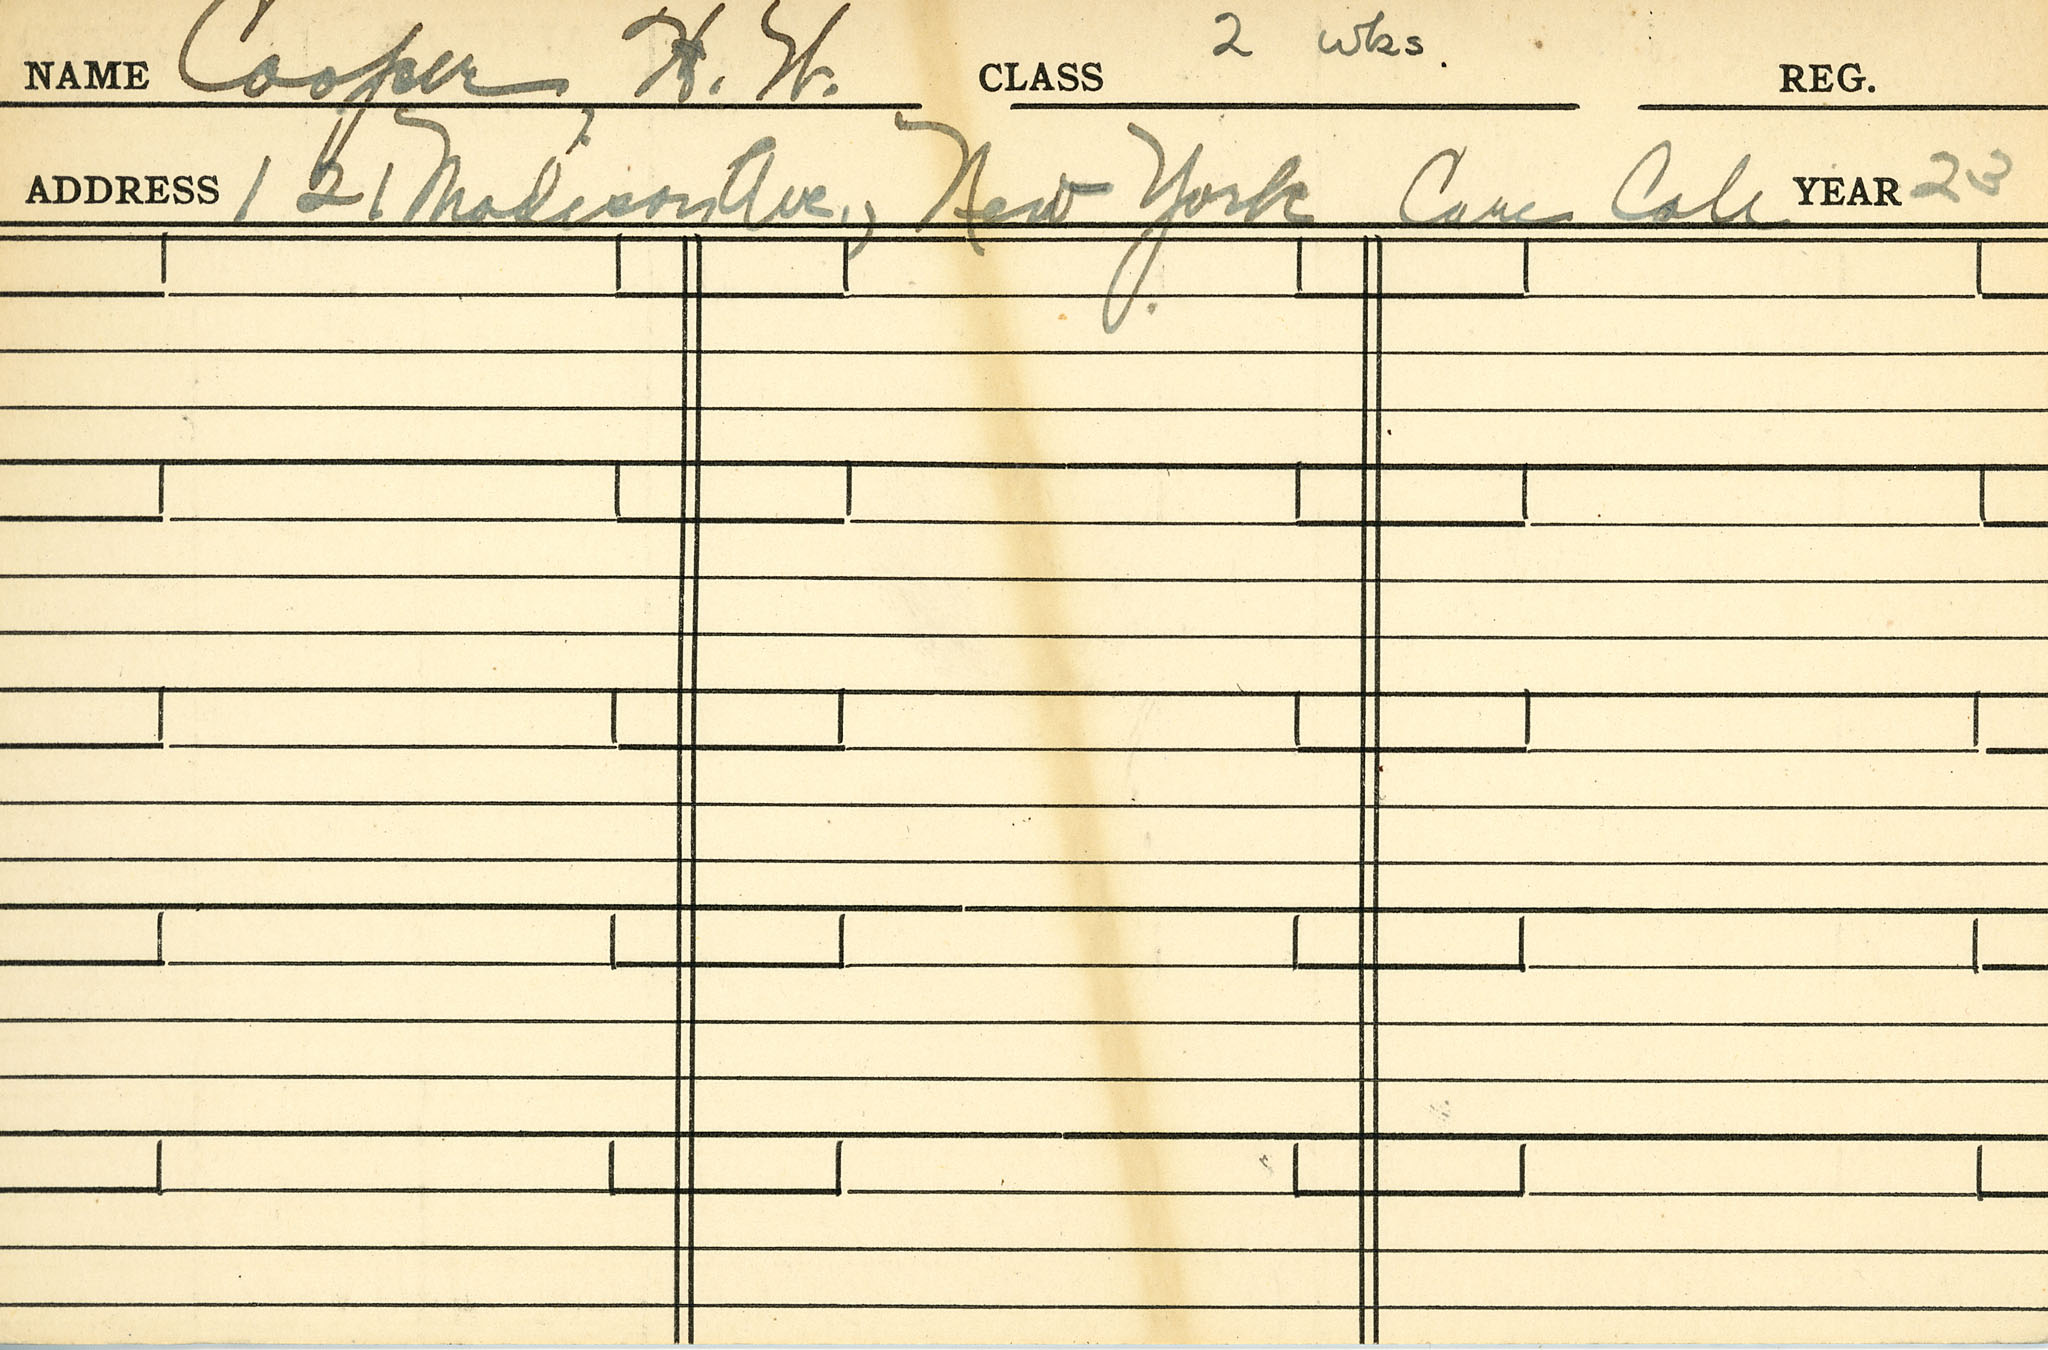 NAME Cooper, H. W. CLASS 2 wks. REG.
ADDRESS 121 Madison Ave., New York YEAR 23